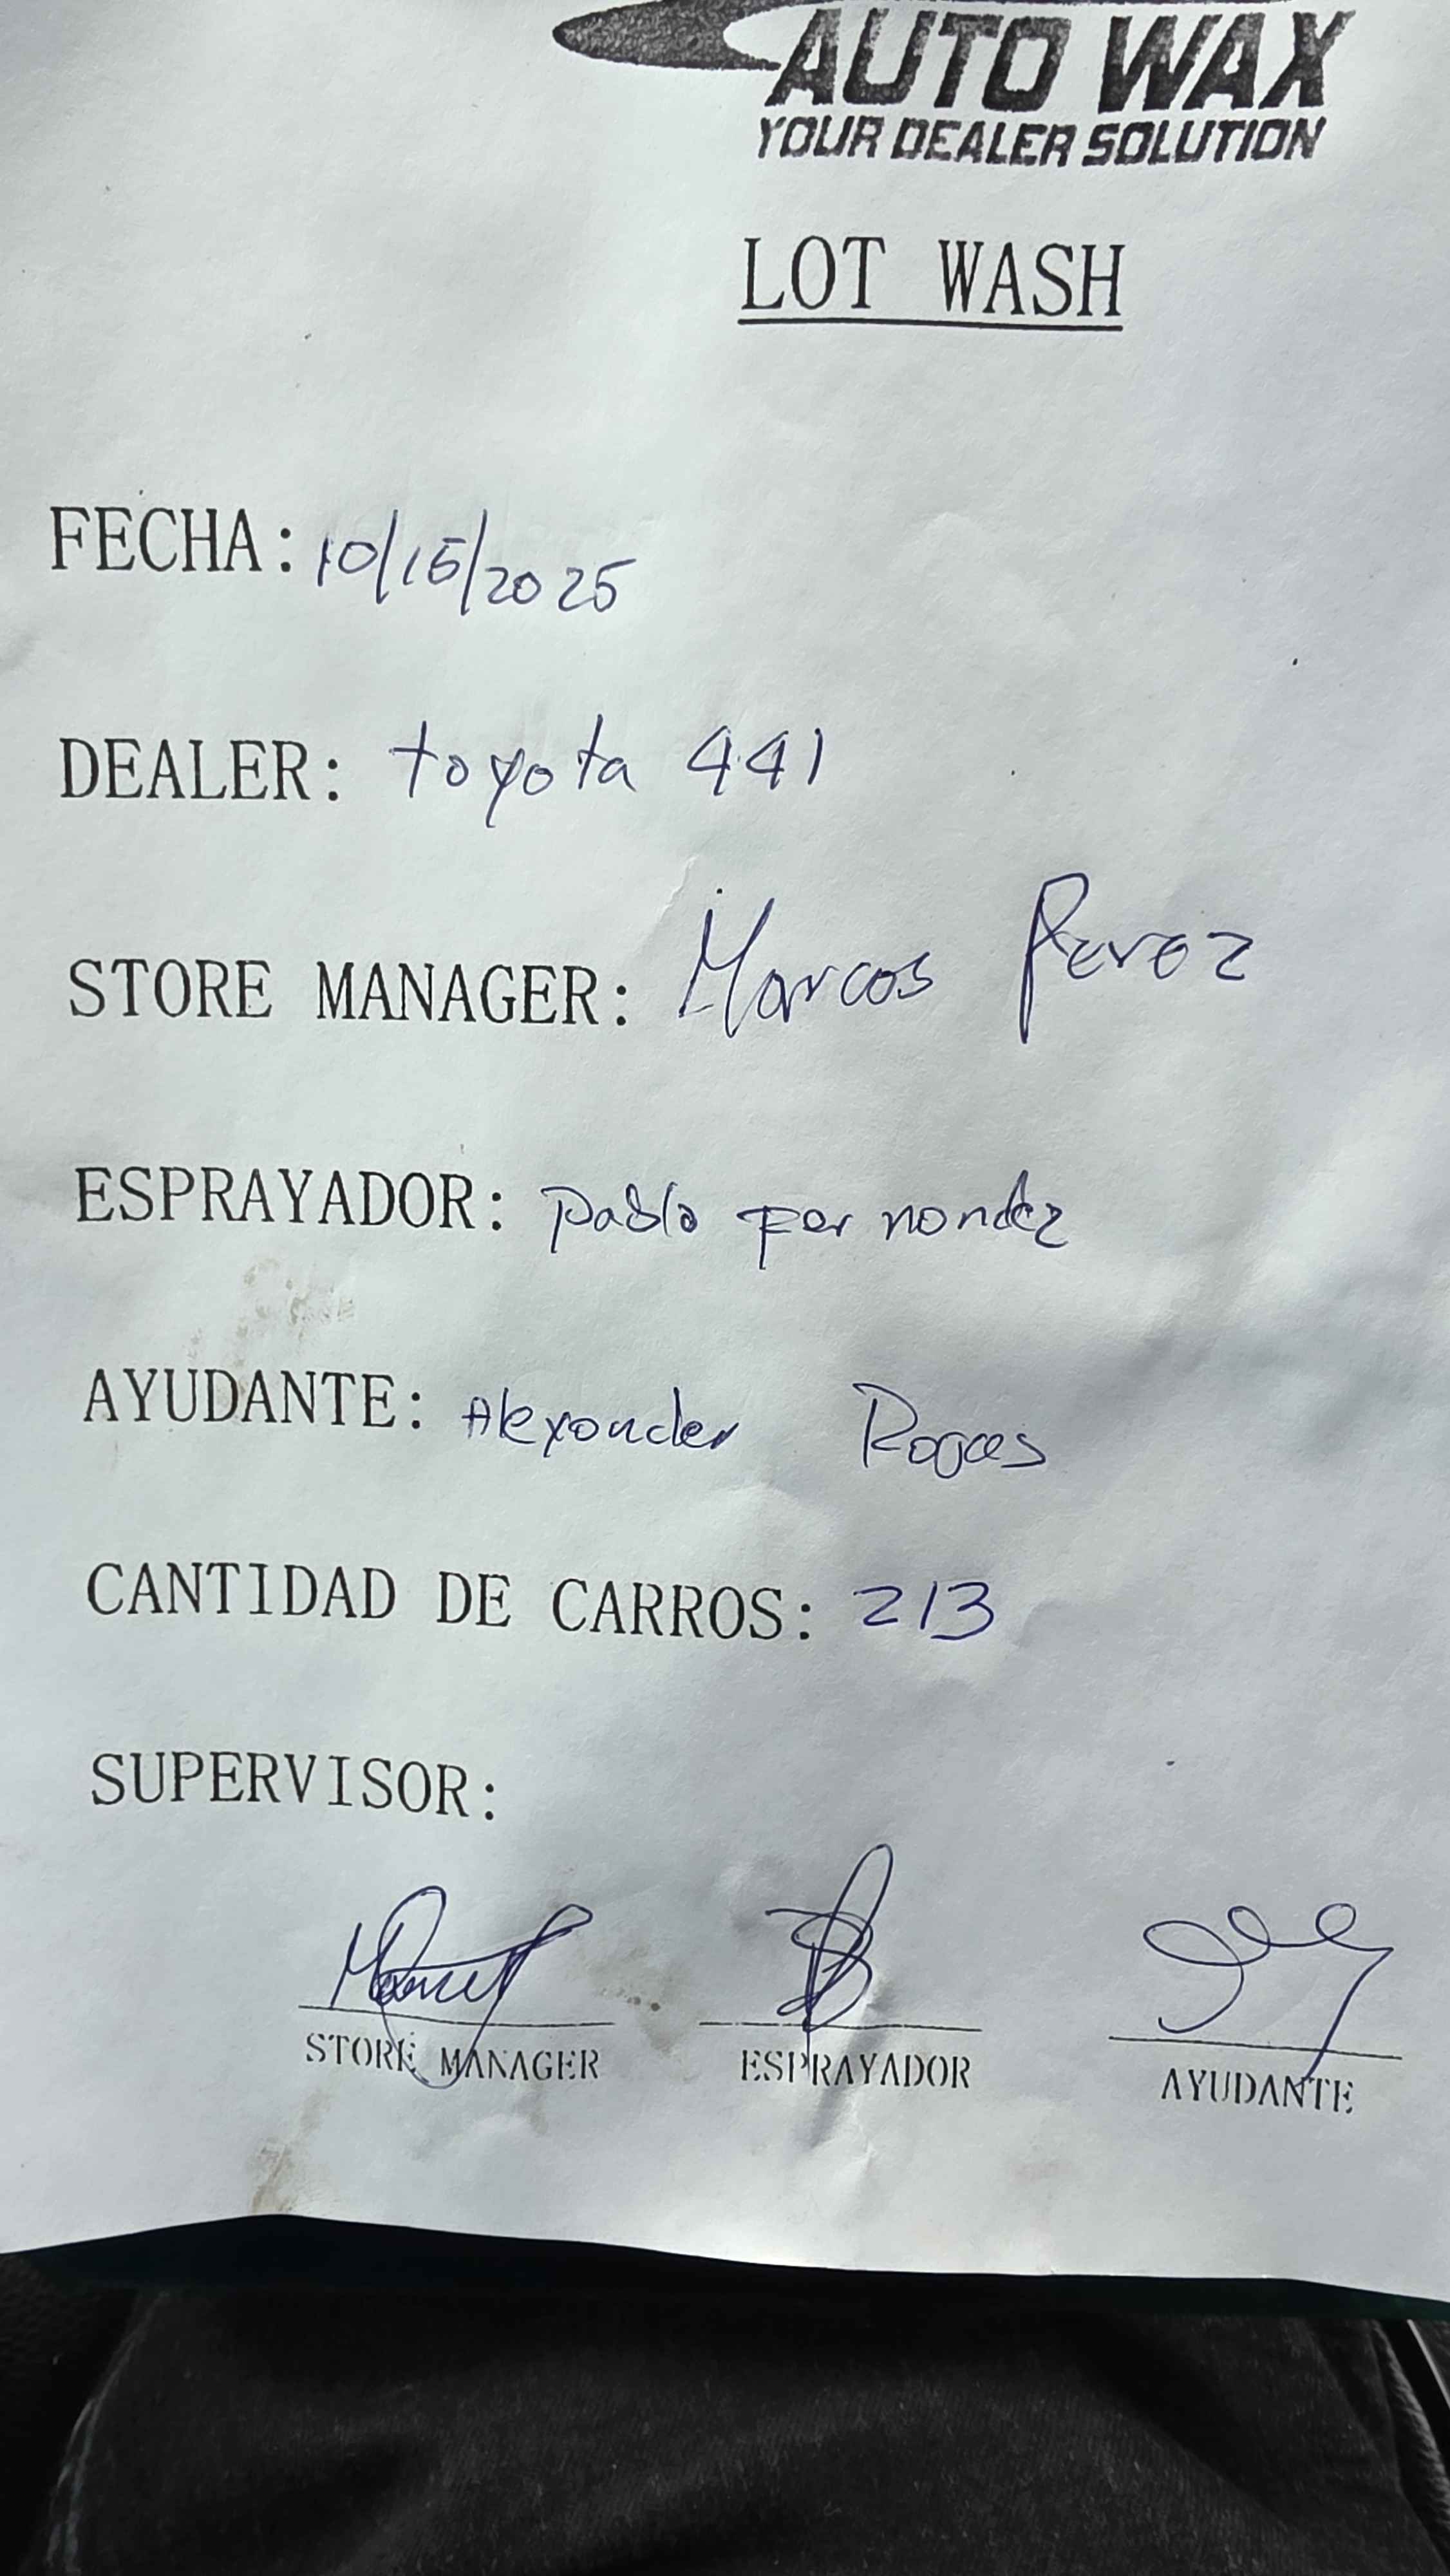 AUTO WAX
YOUR DEALER SOLUTION
LOT WASH
FECHA: 10/15/2025
DEALER: toyota 441
STORE MANAGER: Marcos Perez
ESPRAYADOR: Pablo fernondez
AYUDANTE: Alexander Rogas
CANTIDAD DE CARROS: 213
SUPERVISOR:
STORE MANAGER ESPRAYADOR AYUDANTE